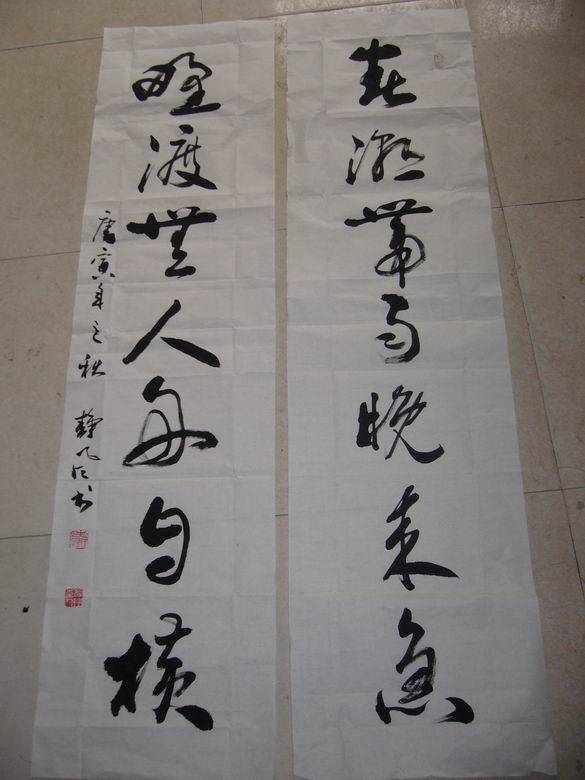 春潮带雨晚来急
野渡无人舟自横
庚寅年之秋 静
书